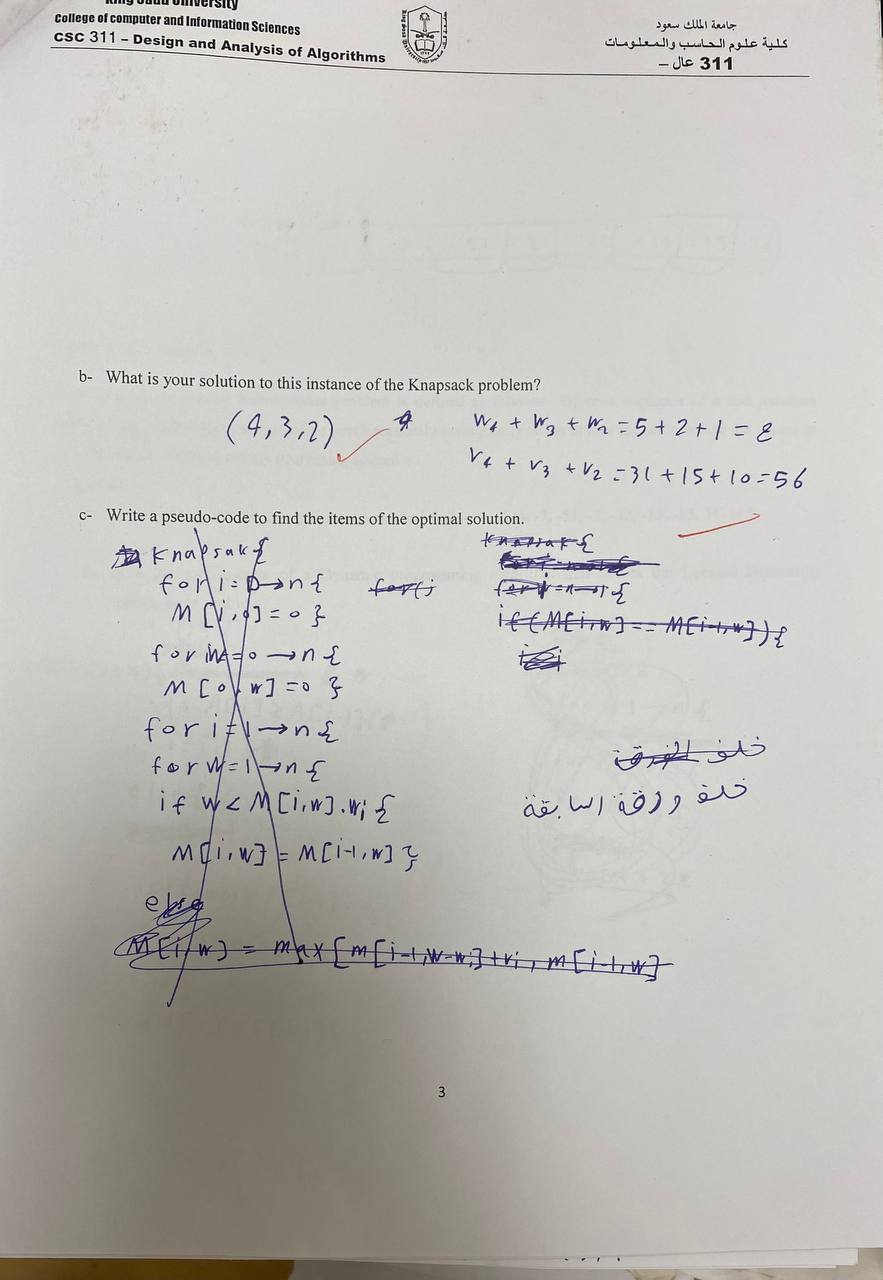 King Saud University
College of computer and Information Sciences
CSC 311 – Design and Analysis of Algorithms
جامعة الملك سعود
كلية علوم الحاسب والمعلومات
311 عال –
b- What is your solution to this instance of the Knapsack problem?
(4,3,2)
W4 + W3 + W2 = 5+2+1 = 8
V4 + V3 + V2 = 31+15+10=56
c- Write a pseudo-code to find the items of the optimal solution.
Knapsak{
for i=0→n{
M[i,0]=0}
for w=0→n{
M[0,w]=0}
for i=1→n{
for w=1→n{
if w<M[i,w].wi{
M[i,w]=M[i-1,w]}
else
M[i,w] = max[m[i-1,w-wi]+vi, m[i-1,w]
for(i
Knapsak{
if(M[i,w]==M[i-1,w]){
خلف الورقة
خلف ورقة السابقة
3